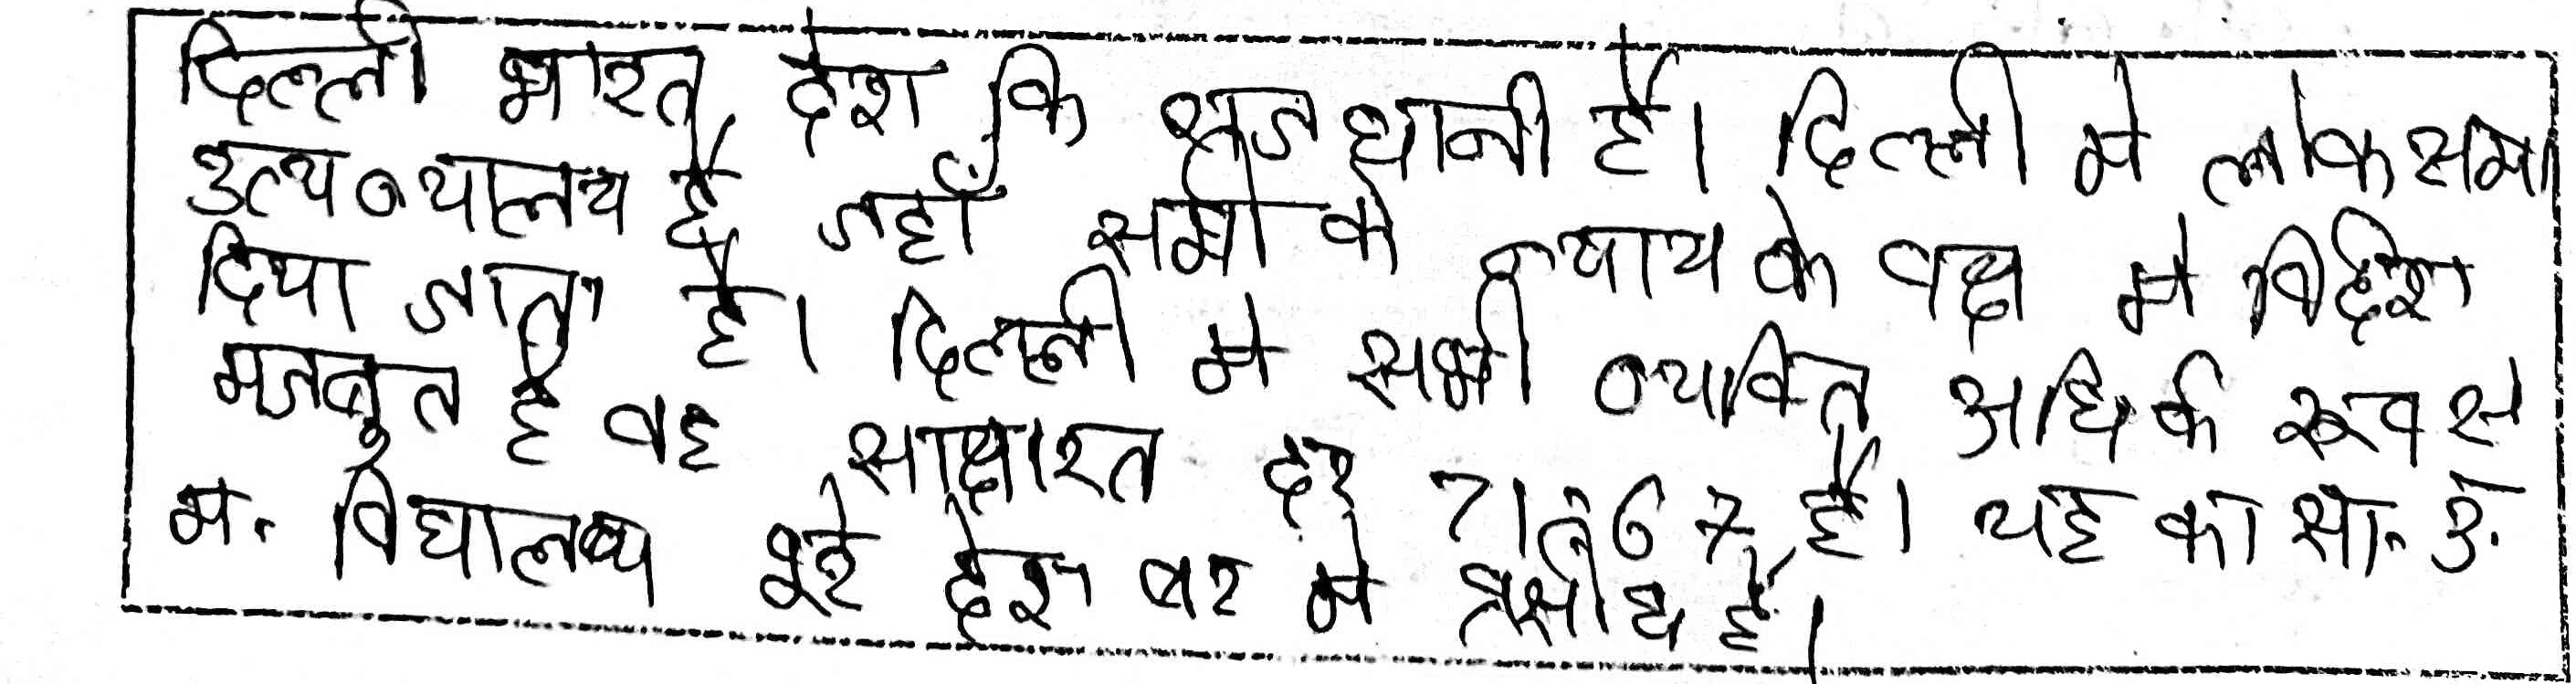 दिल्ली भारत देश कि राजधानी है। दिल्ली मे लोकसभा
उत्य न्यालय है जहाँ सभी के न्याय के पक्ष मे निर्देश
दिया जाता है। दिल्ली मे सभी व्यक्ति आर्थिक रूप से
मजबूत है वह साक्षारत दर है। यह का
म. विद्यालय पूरे देश भर मे प्रसीध है।